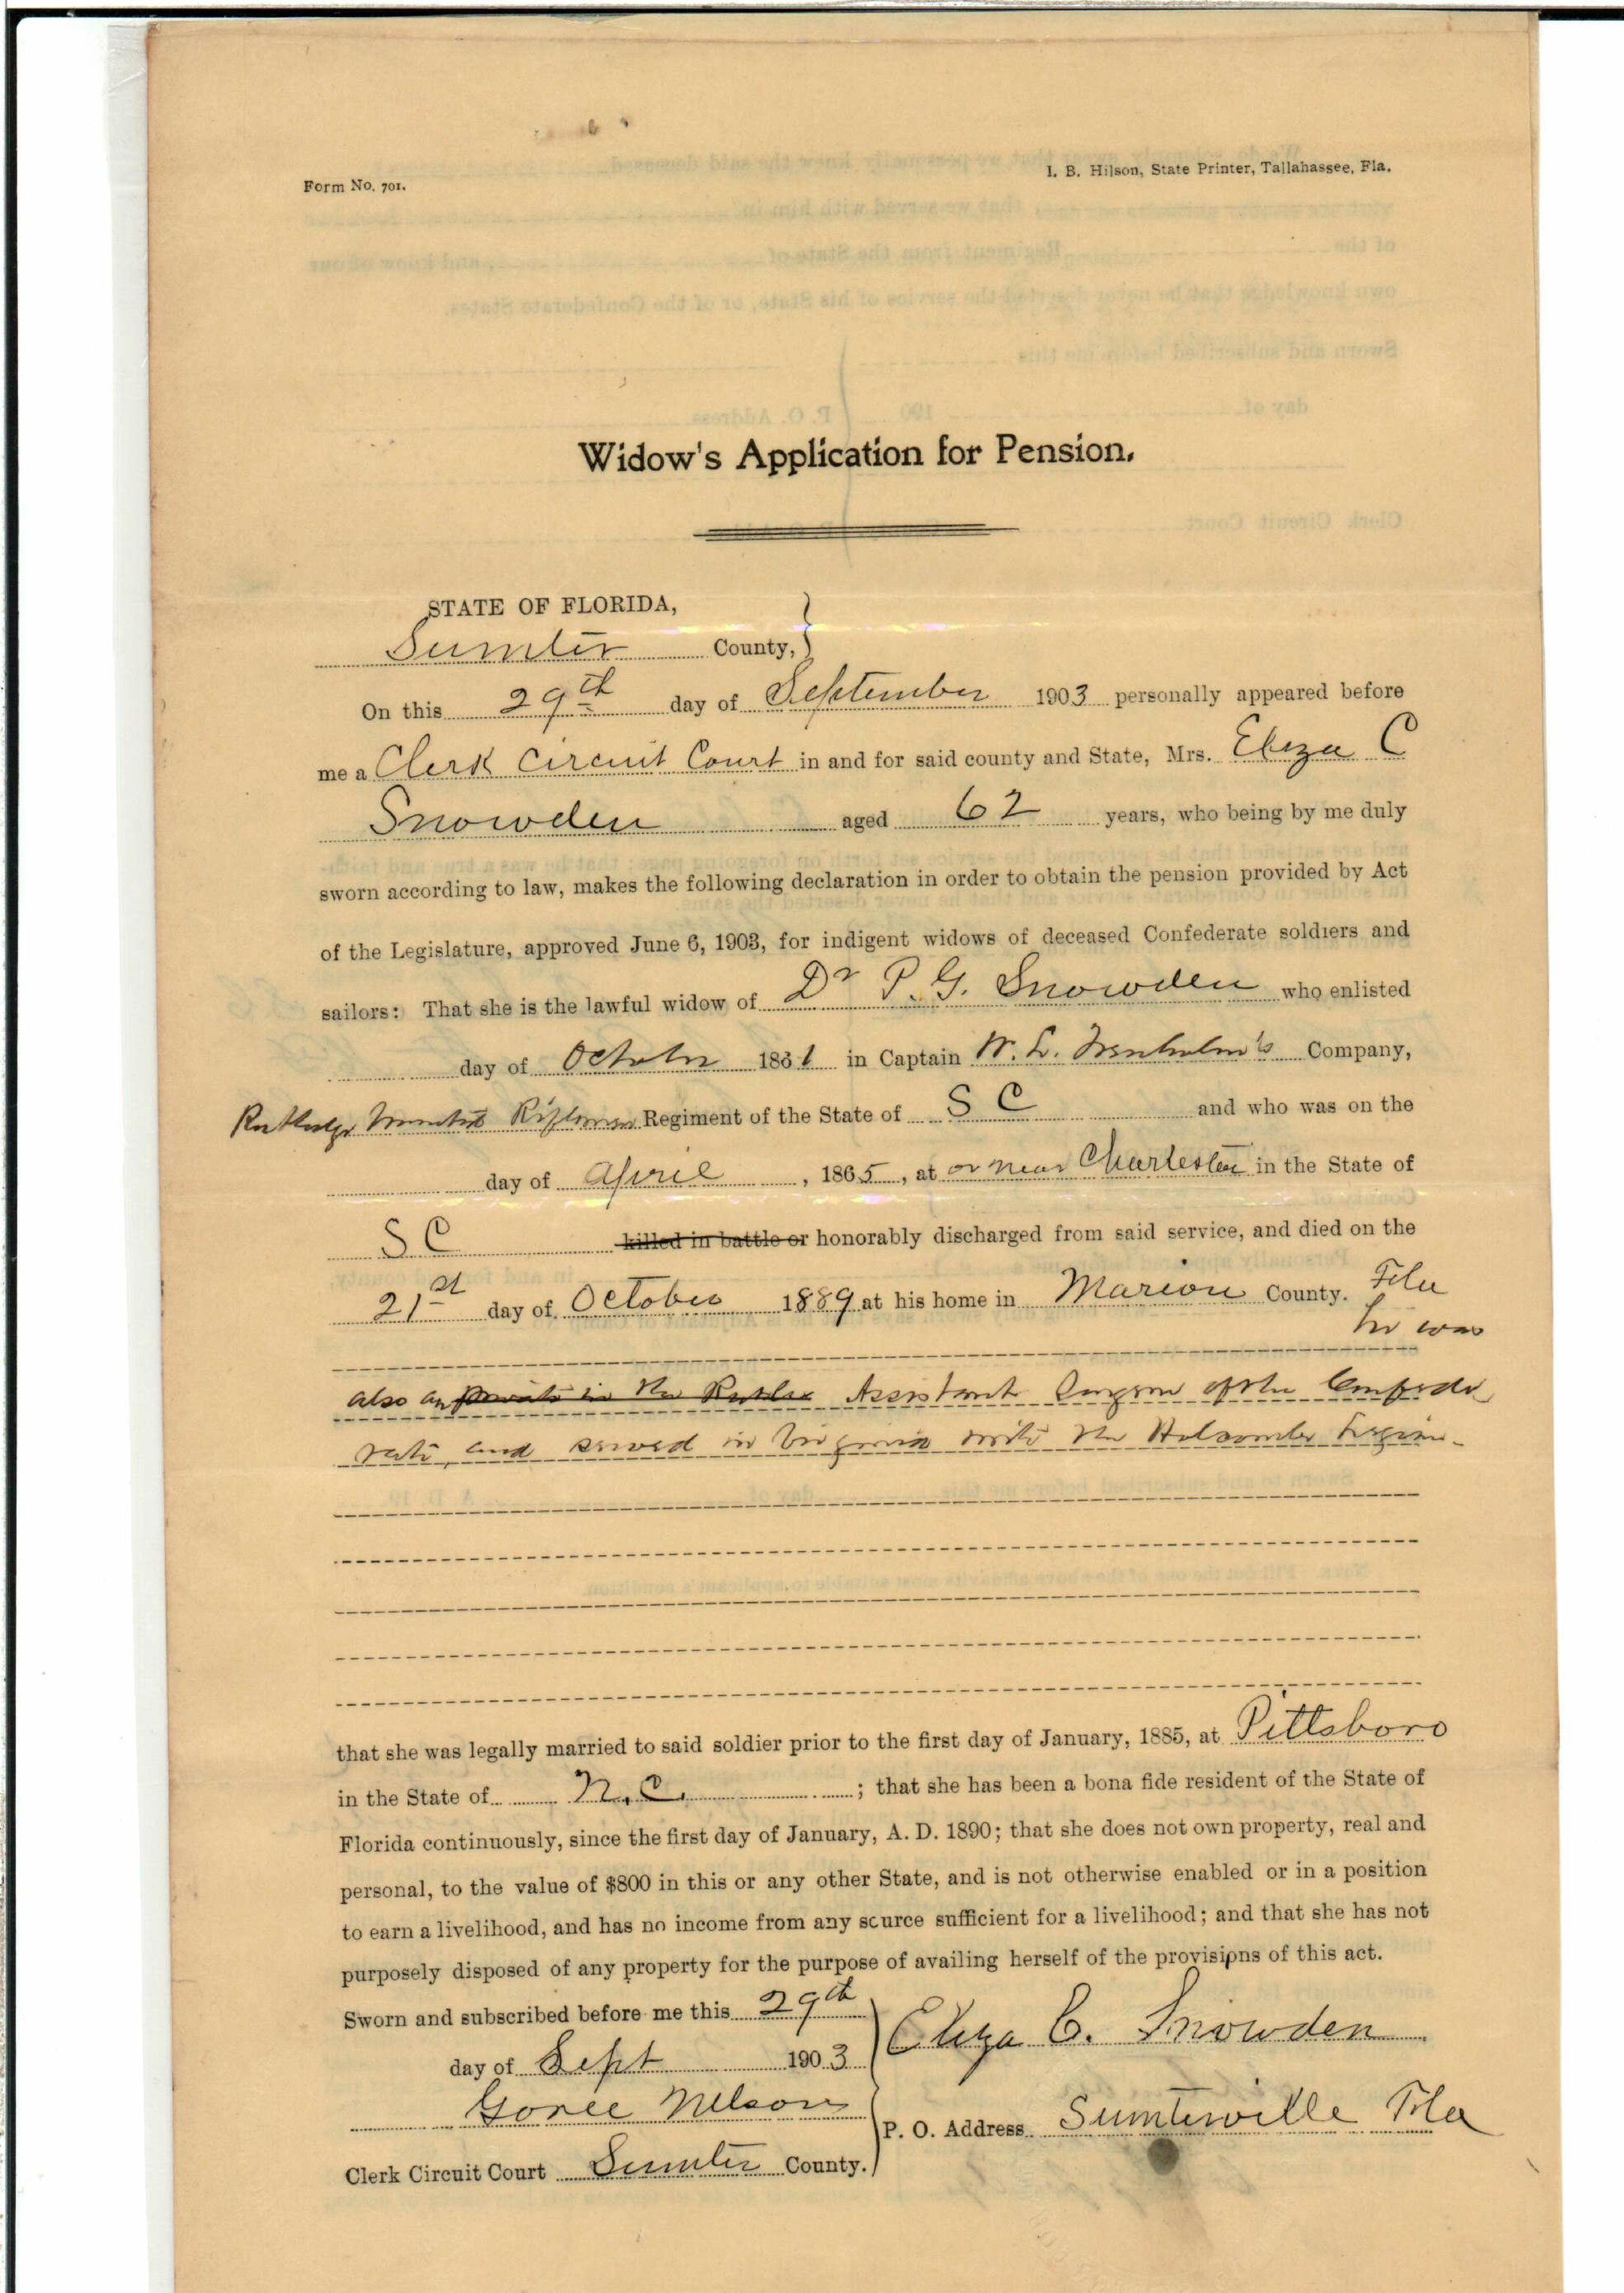 Form No. 701.
I. B. Hilson, State Printer, Tallahassee, Fla.
Widow's Application for Pension.
STATE OF FLORIDA,
Sumter County,
On this 29th day of September 1903 personally appeared before
me a Clerk Circuit Court in and for said county and State, Mrs. Eliza C
Snowden aged 62 years, who being by me duly
sworn according to law, makes the following declaration in order to obtain the pension provided by Act
of the Legislature, approved June 6, 1903, for indigent widows of deceased Confederate soldiers and
sailors: That she is the lawful widow of Dr P. G. Snowden who enlisted
day of October 1861 in Captain W. L. Trenholm's Company,
Rutledge Mounted Riflemen Regiment of the State of S C and who was on the
day of April, 1865, at or near Charleston in the State of
S C killed in battle or honorably discharged from said service, and died on the
21st day of October 1889 at his home in Marion County. Fla
he was
also an private in the Assistant Surgeon of the Confede
rate, and served in Virginia with the Holcombe Legion-
that she was legally married to said soldier prior to the first day of January, 1885, at Pittsboro
in the State of N.C.; that she has been a bona fide resident of the State of
Florida continuously, since the first day of January, A. D. 1890; that she does not own property, real and
personal, to the value of $800 in this or any other State, and is not otherwise enabled or in a position
to earn a livelihood, and has no income from any scurce sufficient for a livelihood; and that she has not
purposely disposed of any property for the purpose of availing herself of the provisions of this act.
Sworn and subscribed before me this 29th
day of Sept 1903
Eliza C. Snowden
Goree Nelson
P. O. Address Sumterville Fla
Clerk Circuit Court Sumter County.